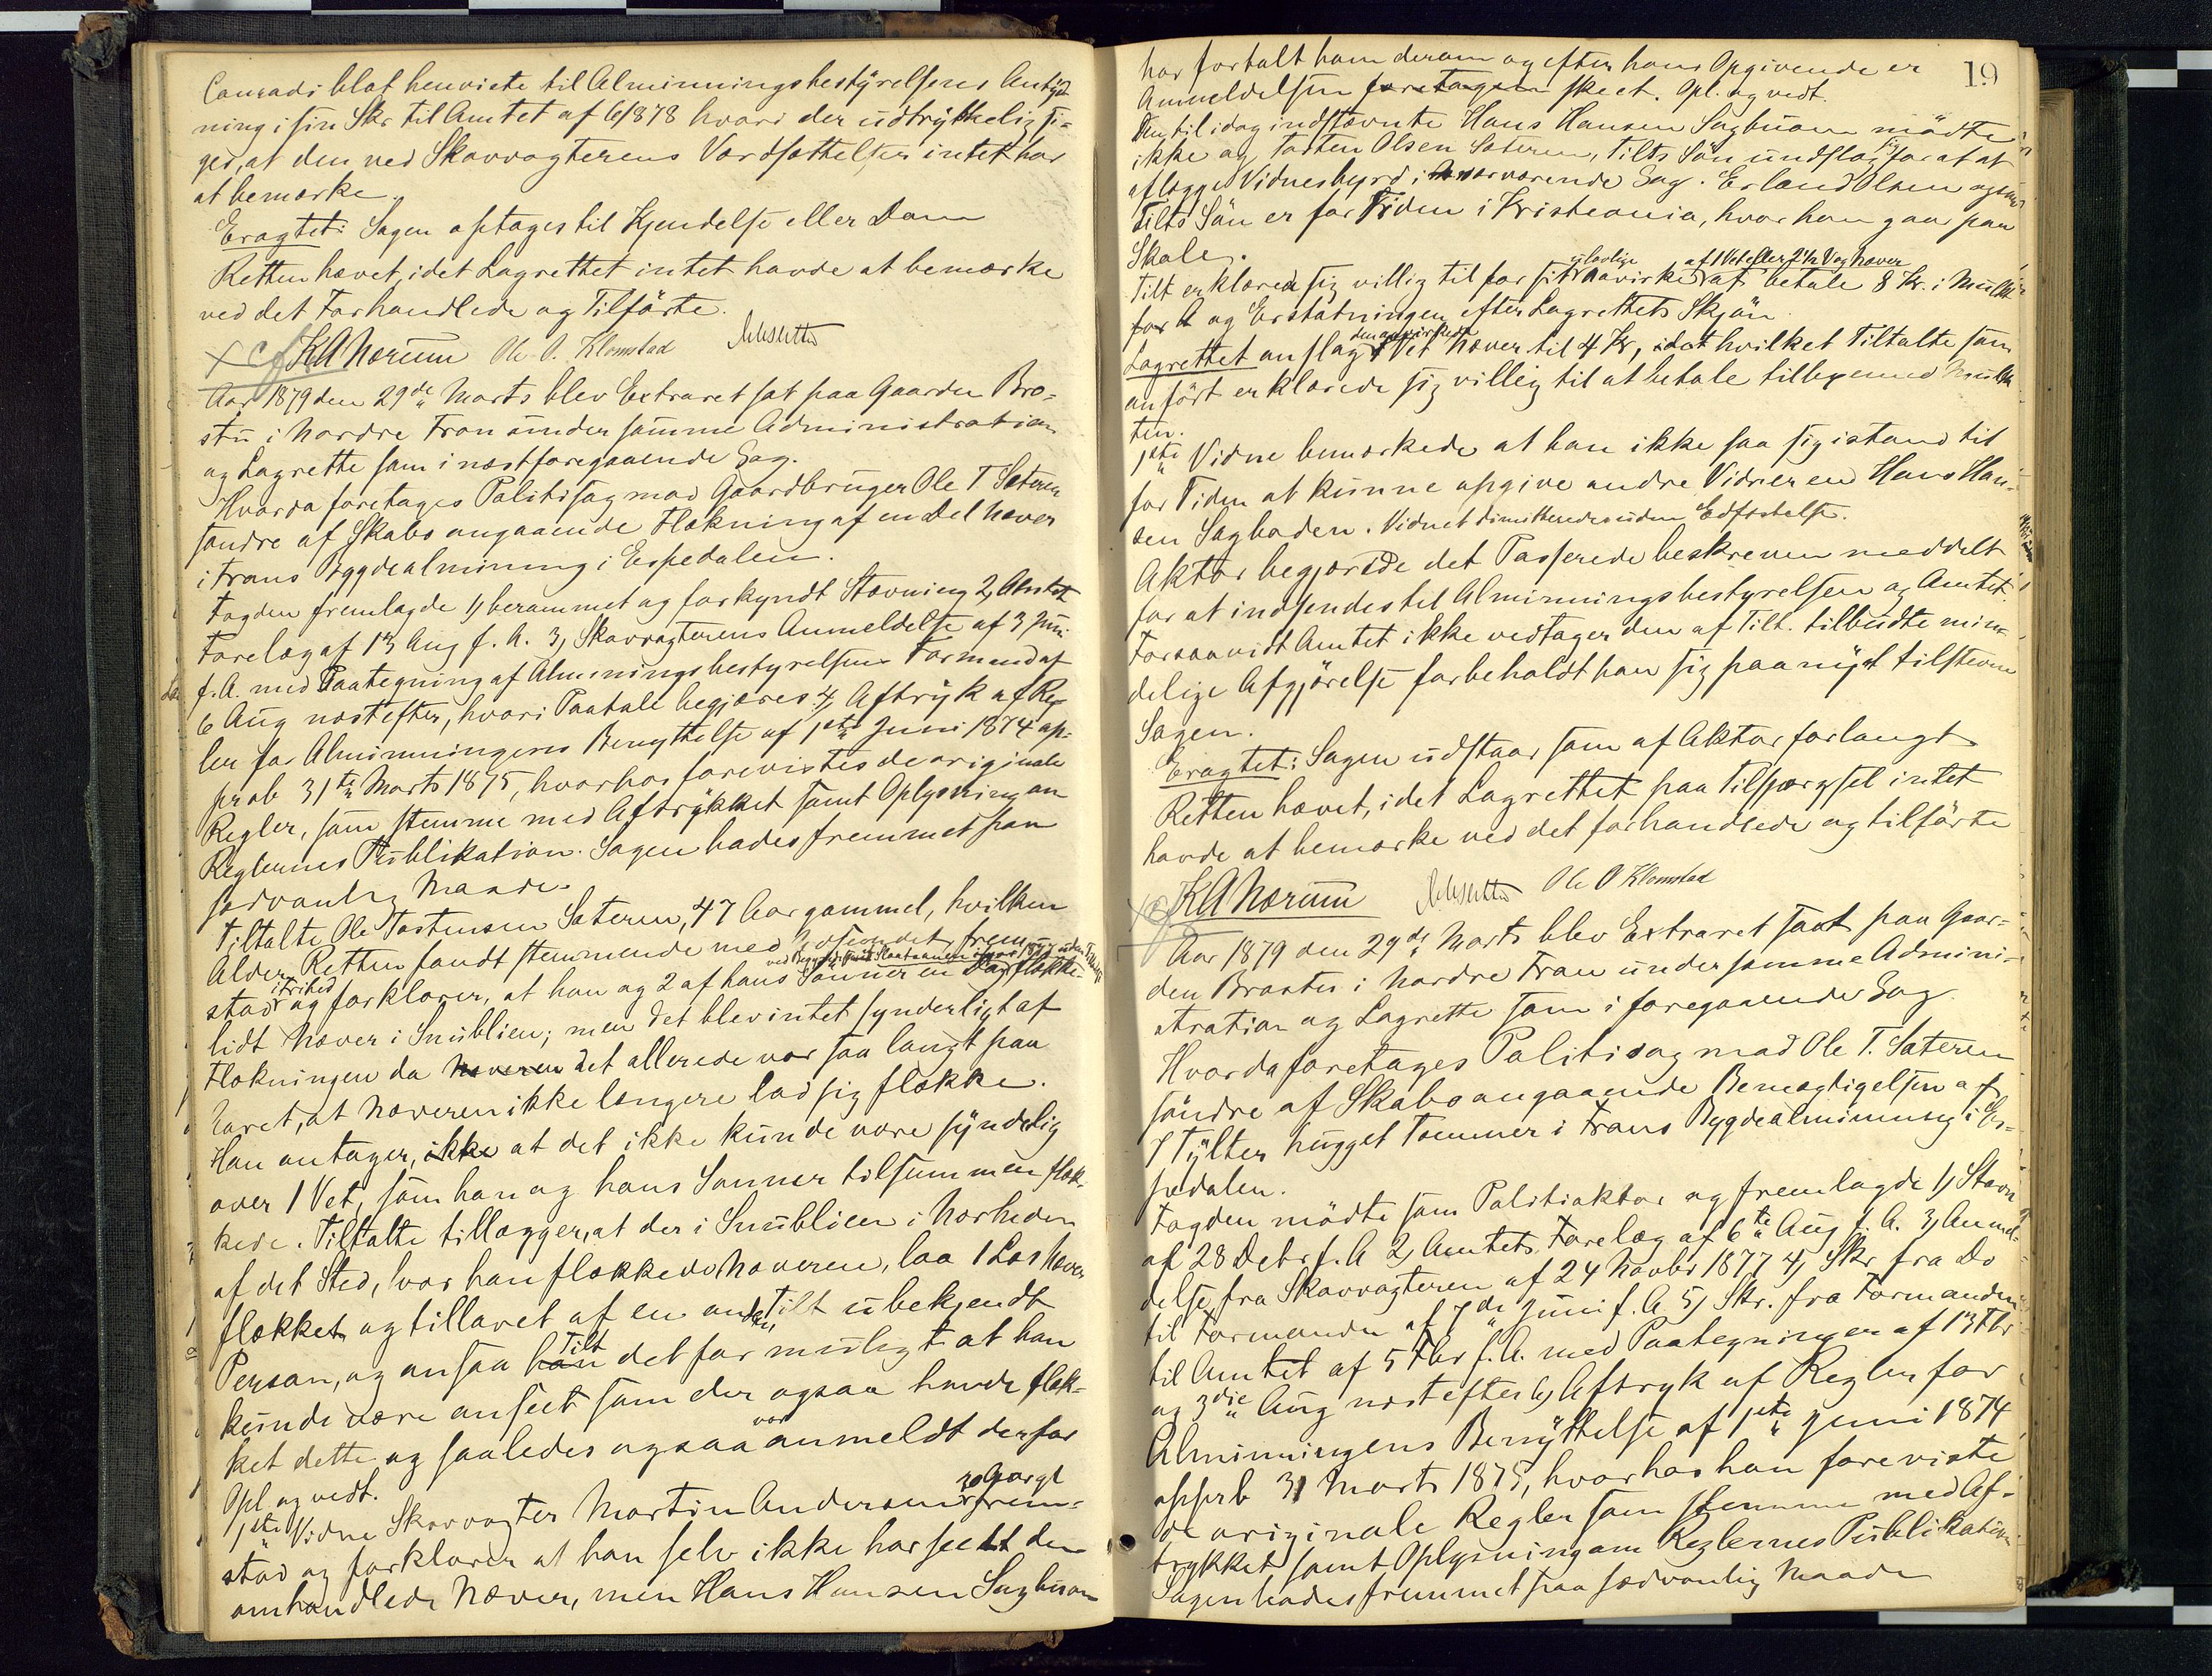 Conradi blot henviste til Alminningsbestyrelsens Antyd
ning i sin Skr til Amtet af 6/878 hvori der udtrykkelig si-
ges, at den ved Skovvogterens Værdsættelser intet har
at bemærke.
Eragtet: Sagen optages til Kjendelse eller Dom
Retten hævet, idet Lagrettet intet havde at bemærke
ved det Forhandlede og Tilførte.
KANærum Ole O. Klomstad
Aar 1879 den 29de Marts blev Extraret sat paa Gaarden Bro-
stu i Nordre Fron under samme Administration
og Lagrette som i næstforegaaende Sag.
Hvorda foretages Politisag mod Gaardbruger Ole T Sæteren
søndre af Skabo angaaende Flækning af en Del Næver
i Frons Bygdealminning i Espedalen.
Fogden fremlagde 1, berammet og forkyndt Stævning 2, Amtets
Forelæg af 13 Aug f. A. 3, Skovvogterens Anmeldelse af 3 Juni
f. A. med Paategning af Alminningsbestyrelsens Formand af
6 Aug næstefter, hvori Paatale begjæres 4, Aftryk af Reg
ler for Alminningens Benyttelse af 1ste Juni 1874 ap-
prob 31te Marts 1875, hvorhos forevistes de originale
Regler, som stemme med Aftrykket samt Oplysning om
Reglernes Publikation. Sagen bades fremmet paa
sædvanlig Maade.
Tiltalte Ole Tostensen Sæteren, 47 Aar gammel, hvilken
Alder Retten fandt stemmende med Udseendet, frem-
stod i Frihed og forklarer, at han og 2 af hans Sønner en Dag flække
lidt Næver i Snublien; men det blev intet synderligt af
Flækningen da Næveren det allerede var saa langt paa
Aaret, at Næveren ikke længere lod sig flække.
Han antager, ikke at det ikke kunde være synderlig
over 1 Vet, som han og hans Sønner tilsammen flæk-
kede. Tiltalte tillægger, at der i Snublien i Nærheden
af det Sted, hvor han flækkede Næveren, laa 1 Læs Næver
flækket og tillavet af en anden, Tilt ubekjendt
Person, og ansaa han Tilt det for muligt at han
kunde være anseet som der ogsaa havde flæk-
ket dette og saaledes ogsaa var anmeldt derfor
Opl. og vedt.
1ste Vidne Skovvogter Martin Andersen frem-
stod og forklarer at han selv ikke har seet den
omhandlede Næver, men Hans Hansen Sagbuen
19
har fortalt ham derom og efter hans Opgivende er
Anmeldelsen foretagen skeet. Opl. og vedt.
Den til idag indstævnte Hans Hansen Sagbuen mødte
ikke og Tosten Olsen Sæteren, Tilts Søn undslog sig for at
aflægge Vidnesbyrd i nærværende Sag. Erland Olsen ogsaa
Tilts Søn er for Tiden i Kristiania, hvor han gaar paa
Skole.
Tilt erklæred sig villig til for sit ulovlige Navirke af 1 Vet eller 2½ Vog Næver at betale 8 Kr. i Mulkt
for A og Erstatningen efter Lagrettets Skjøn
Lagrettet anslog den navirkede 1 Vet Næver til 4 Kr, idet hvilket Tiltalte som
anført erklærede sig villig til at betale tilligemed Mulk
ten.
1ste Vidne bemærkede at han ikke saa sig istand til
for Tiden at kunne opgive andre Vidner end Hans Han-
sen Sagboden. Vidnet dimitteredes uden Edfæstelse.
Aktor begjærede det Passerede beskreven meddelt
for at indsendes til Alminningsbestyrelsen og Amtet.
Forsaavidt Amtet ikke vedtager den af Tilt. tilbudte min-
delige Afgjørelse forbeholdt han sig paa nyt tilstevne
Sagen.
Eragtet: Sagen udstaar som af Aktor forlangt
Retten hævet, idet Lagrettet paa Tilspørgsel intet
havde at bemærke ved det forhandlede og tilførte
KANærum Ole O Klomstad
Aar 1879 den 29de Marts blev Extraret sat paa Gaar-
den Brostu i Nordre Fron under samme Admini-
stration og Lagrette som i foregaaende Sag.
Hvorda foretages Politisag mod Ole T. Sæteren
søndre af Skabo angaaende Bemægtigelsen af
7 Tylter hugget Tømmer i Frons Bygdealminning i Es-
pedalen.
Fogden mødte som Politiaktor og fremlagde 1, Stævn
af 28 Debr f. A 2, Amtets Forelæg af 6te Aug f. A. 3, Anmel-
delse fra Skovvogteren af 24 Novbr 1877 4, Skr fra Do
til Formanden af 7de Juni f. A. 5, Skr. fra Formanden
til Amtet af 5 Fbr f. A. med Paategninger af 13 Fbr
og 3die Aug næstefter 6, Aftryk af Regler for
Alminningens Benyttelse af 1ste Juni 1874
apprb 31 Marts 1875, hvorhos han foreviste
de originale Regler som stemme med Af-
trykket, samt Oplysning om Reglernes Publikation
Sagen bades fremmet paa sædvanlig Maade